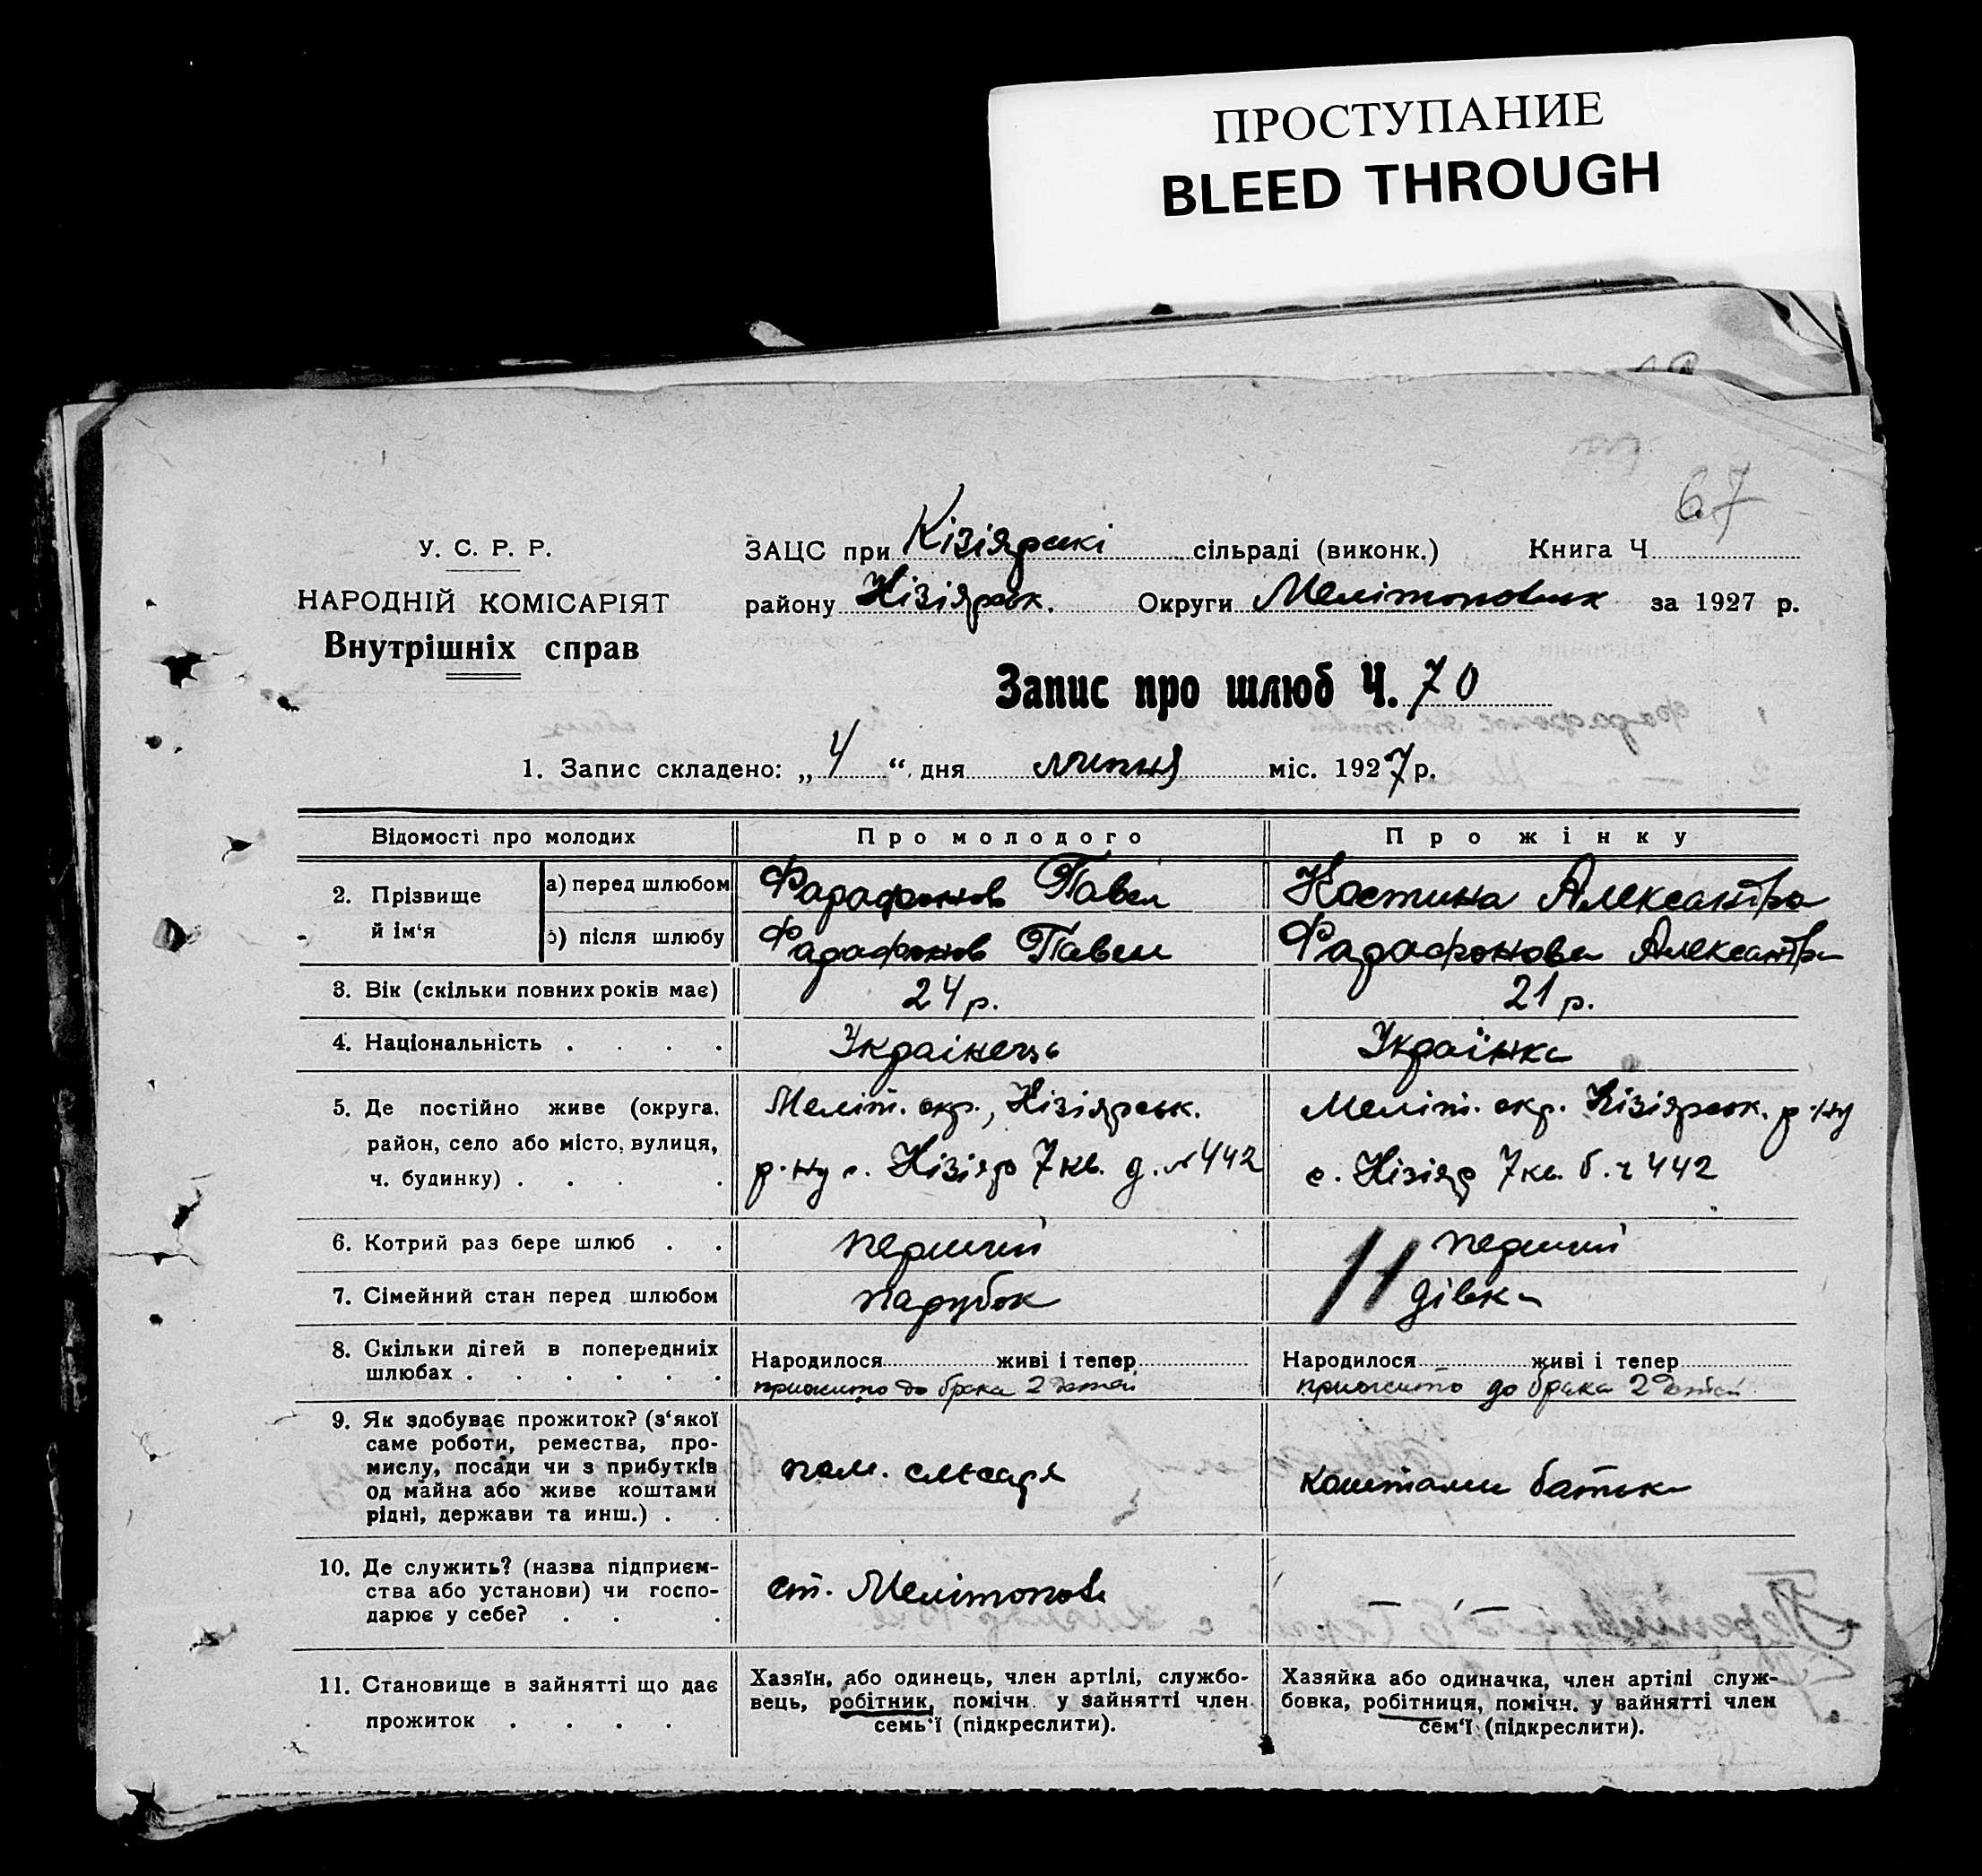 ПРОСТУПАНИЕ
BLEED THROUGH
67
У. С. Р. Р.
НАРОДНІЙ КОМІСАРІЯТ
Внутрішніх справ
ЗАЦС при Кізіярські сільраді (виконк.) Книга Ч
району Кізіярськ. Округи Мелітопольськ за 1927 р.
Запис про шлюб Ч. 70
1. Запис складено: „ 4 “ дня липня міс. 1927 р.
Відомості про молодих Про молодого Про жінку
2. Прізвище й ім‘я а) перед шлюбом Фарафонов Павел Костина Александра
б) після шлюбу Фарафонов Павел Фарафонова Александра
3. Вік (скільки повних років має) 24 р. 21 р.
4. Національність . . . . Українець Українка
5. Де постійно живе (округа, Меліт. окр., Кізіярськ. Меліт. окр. Кізіярськ. р-ну
район, село або місто, вулиця, р-ну с. Кізіяр 7 кв. д. № 442 с. Кізіяр 7 кв. б. ч 442
ч. будинку) . . . .
6. Котрий раз бере шлюб . . перший перший
7. Сімейний стан перед шлюбом парубок дівка
8. Скільки дігей в попередниіх Народилося живі і тепер Народилося живі і тепер
шлюбах . . . . . . прижито до брака 2 детей прижито до брака 2 детей
9. Як здобуває прожиток? (з‘якої
саме роботи, ремества, про-
мислу, посади чи з прибутків пом. слєсаря коштами батька
од майна або живе коштами
рідні, держави та инш.) . .
10. Де служить? (назва підприєм-
ства або установи) чи госпо- ст. Мелітополь — —
дарює у себе? . . .
11. Становище в зайнятті що дає Хазяїн, або одинець, член артілі, службо- Хазяйка або одиначка, член артілі служ-
прожиток . . . . вець, робітник, помічн. у зайнятті член бовка, робітниця, помічн. у зайнятті член
семь‘ї (підкреслити). сем‘ї (підкреслити).